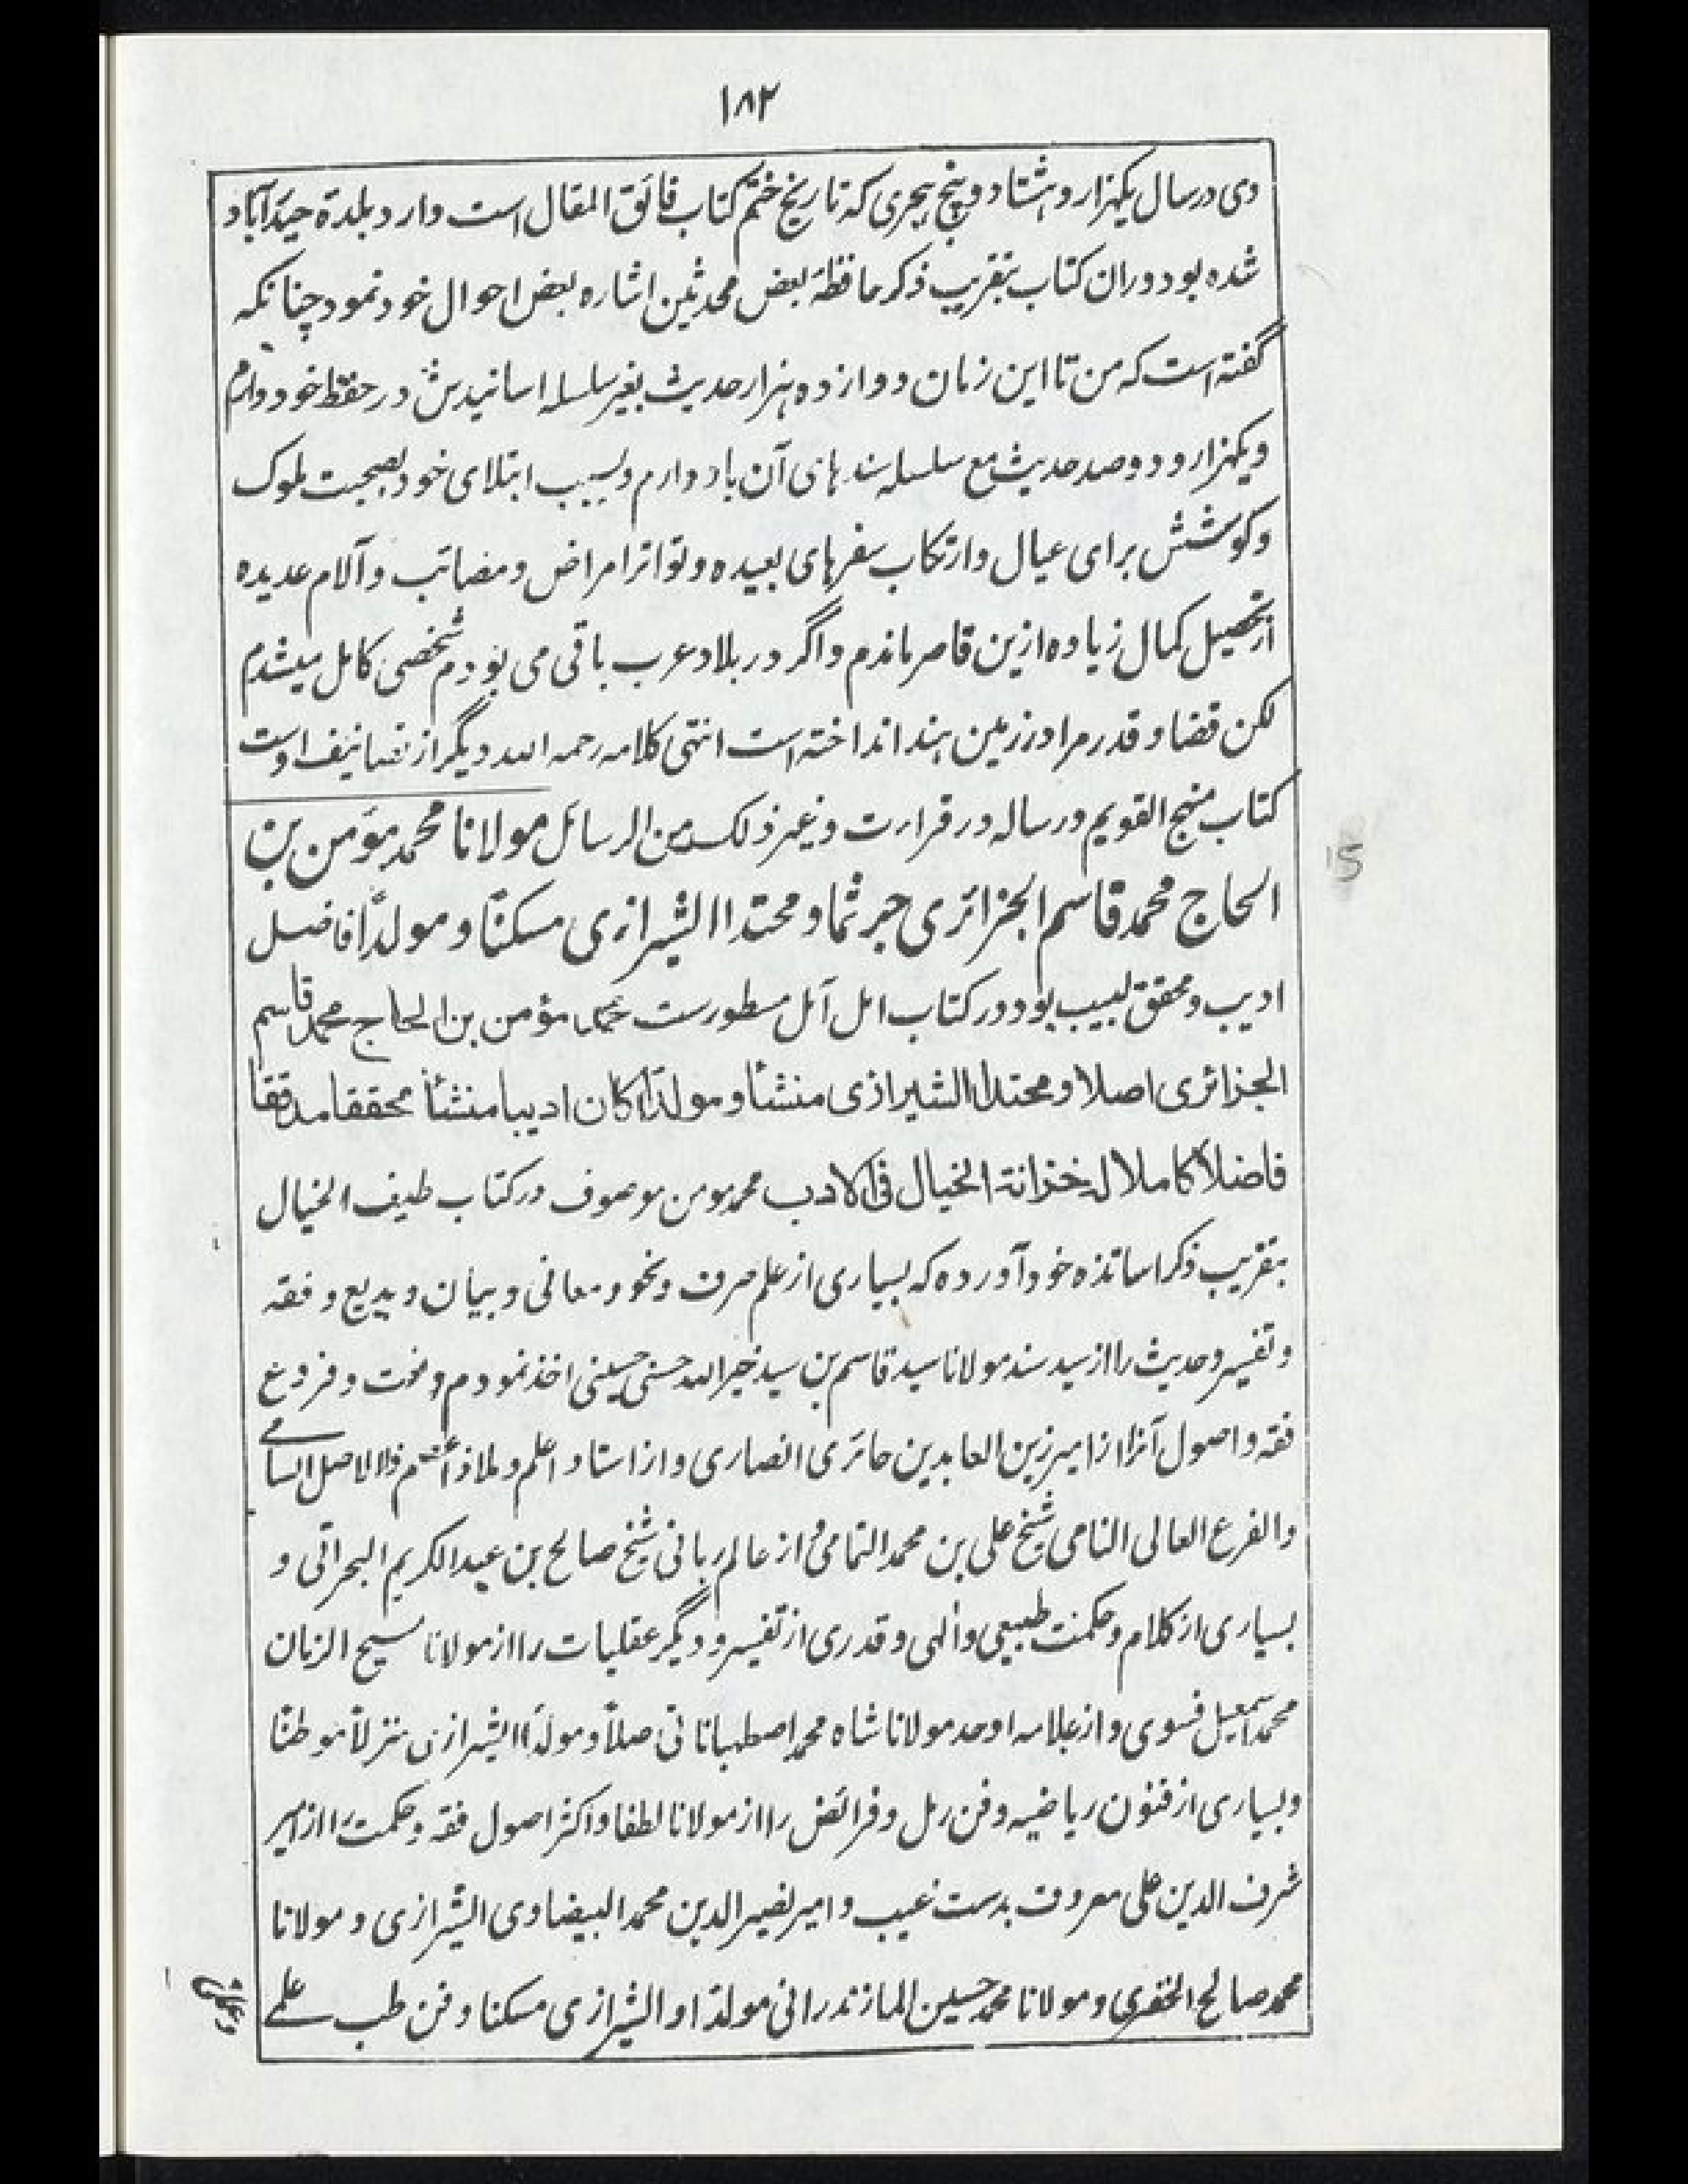 ۱۸۲
وی در سال یکهزار و هشتاد و پنج هجری که تاریخ ختم کتاب فائق المقال است وارد بلدة حیدرآباد
شده بود و دران کتاب بتقریب ذکر حافظۀ بعض محدثین اشاره بعض احوال خود نمود چنانکه
گفته است که من تا این زمان دوازده هزار حدیث بغیر سلسله اسانیدش در حفظ خود دارم
و یکهزار و دو صد حدیث مع سلسله سندهای آن یاد دارم و بسبب ابتلای خود بصحبت ملوک
و کوشش برای عیال و ارتکاب سفرهای بعیده و تواتر امراض و مصائب و آلام عدیده
از تحصیل کمال زیاده ازین قاصر ماندم و اگر در بلاد عرب باقی می بودم شخصی کامل میشدم
لکن قضا و قدر مرا در زمین هند انداخته است انتهی کلامه رحمه الله دیگر از تصانیف اوست
کتاب منهج القویم و رساله در قرارت و غیر ذلک من الرسائل مولانا محمد مؤمن بن
الحاج محمد قاسم الجزائری جرثما و محتدا الشیرازی مسکنًا و مولدًا فاضل
ادیب و محقق لبیب بود در کتاب امل آمل مسطورست محمد مؤمن بن الحاج محمد قاسم
الجزائری اصلا و محتدا الشیرازی منشئا و مولدًا کان ادیبا منشئا محققا مدققا
فاضلاً کاملا له خزانة الخیال فی الادب محمد مومن موصوف در کتاب طیف الخیال
بتقریب ذکر اساتذه خود آورده که بسیاری از علم صرف و نحو و معانی و بیان و بدیع و فقه
و تفسیر و حدیث را از سید سند مولانا سید قاسم بن سید خیر الله حسنی حسینی اخذ نمودم و فروع
فقه و اصول آنرا از امیر زین العابدین حائری انصاری و از استاد اعلم و ملاذ اعصم ذالاصل السامے
والفرع العالی النامی شیخ علی بن محمد التمامی و از عالم ربانی شیخ صالح بن عبدالکریم البحرانی و
بسیاری از کلام و حکمت طبیعی و الهی و قدری از تفسیر و دیگر عقلیات را از مولانا مسیح الزمان
محمد اسمعیل فسوی و از علامه اوحد مولانا شاه محمد اصطهباناتی اصلاً و مولدًا الشیرازی منزلاً موطنًا
و بسیاری از فنون ریاضیه و فن رمل و فرائض را از مولانا لطفا و اکثر اصول فقه و حکمت را از میر
شرف الدین علی معروف بدست غیب و امیر نصیر الدین محمد البیضاوی الشیرازی و مولانا
محمد صالح الخضری و مولانا محمد حسین المازندرانی مولدًا و الشیرازی مسکنا و فن طب علمے
15